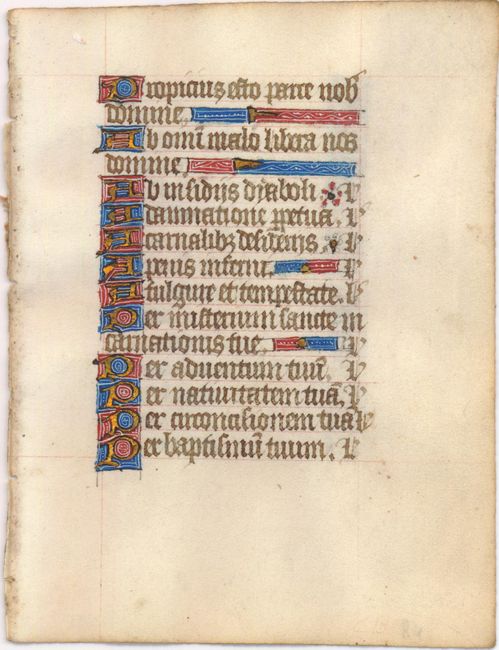 Propicius esto parce nob
domine
Ab omni malo libera nos
domine
Ab insidijs dyaboli. L
A damnatione ppetua. L
A carnalibz desiderijs. L
A penis inferni. L
A fulgure et tempestate. L
Per misterium sancte in
carnationis tue. L
Per aduentum tuū. L
Per natiuitatem tuā. L
Per circoncisionem tuā L
Per baptismū tuum. L